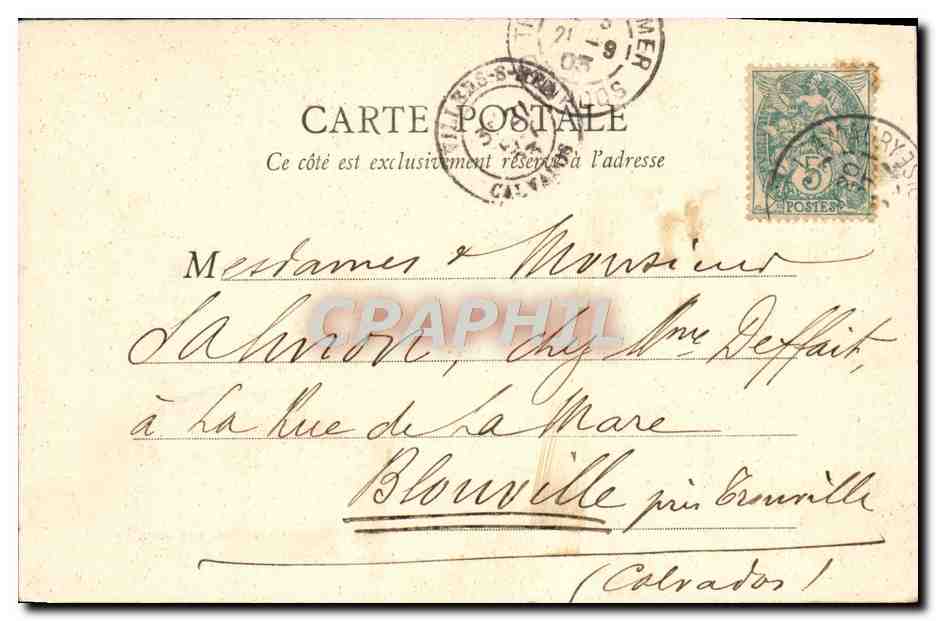 MER
21 9
03
VILLERS-S-MER
CALVADOS
CARTE POSTALE
Ce côté est exclusivement réservé à l'adresse
5
POSTES
Mesdames & Monsieur
CPRAPHIL
Salmon, chez Mme Deffait,
à La Rue de La Mare
Blonville près Trouville
(Calvados)